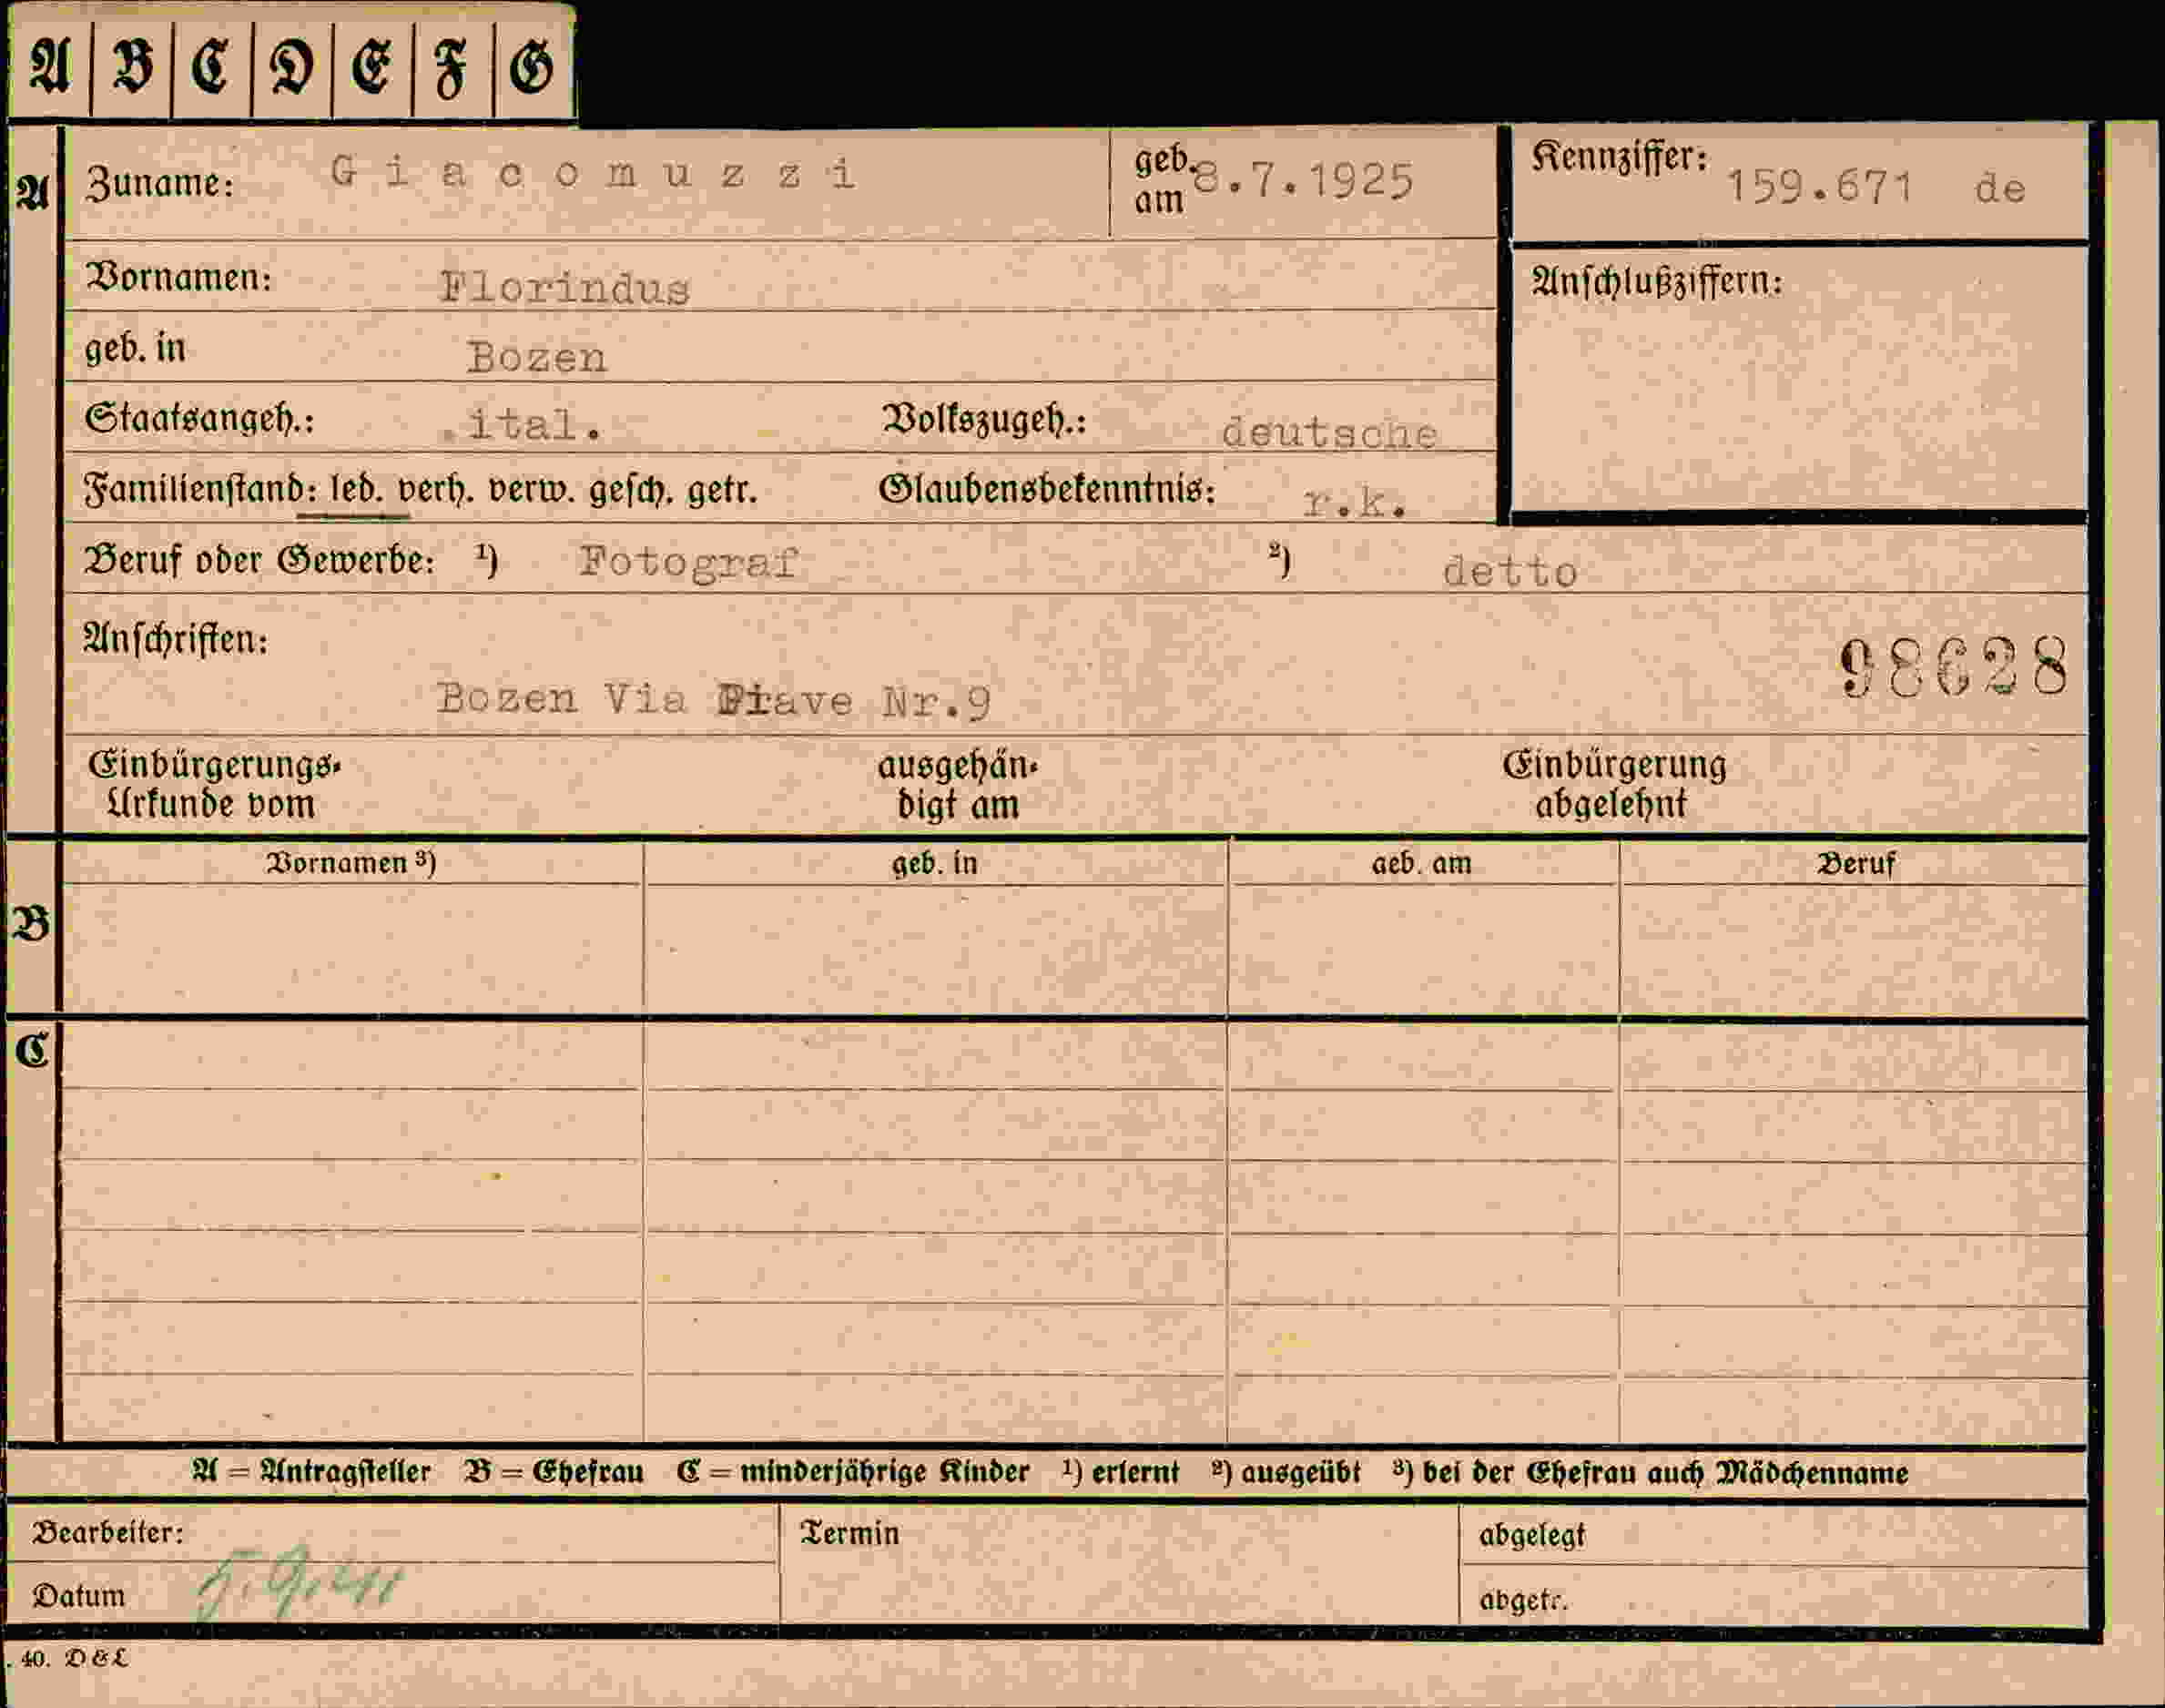 A B C D E F G
A Zuname: Giacomuzzi geb. am 8.7.1925 Kennziffer: 159.671 de
Vornamen: Florindus Anschlußziffern:
geb. in Bozen
Staatsangeh.: ital. Volkszugeh.: deutsche
Familienstand: led. verh. verw. gesch. getr. Glaubensbekenntnis: r.k.
Beruf oder Gewerbe: ¹) Fotograf ²) detto
Anschriften:
98628
Bozen Via Piave Nr.9
Einbürgerungs- ausgehän- Einbürgerung
Urkunde vom digt am abgelehnt
Vornamen ³) geb. in geb. am Beruf
B
C
A = Antragsteller B = Ehefrau C = minderjährige Kinder ¹) erlernt ²) ausgeübt ³) bei der Ehefrau auch Mädchenname
Bearbeiter: Termin abgelegt
Datum abgetr.
. 40. D & L